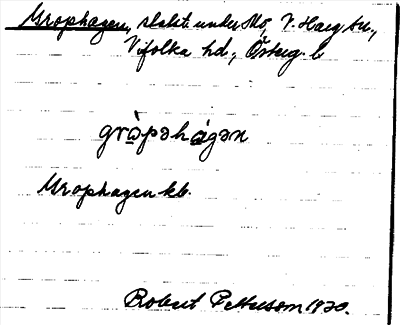 Grophagen, slått under Mo, V. Harg sn.,
Vifolka hd., Östug. l.
gròpəhágən
Grophagen kb.
Robert Pettersson 1930.